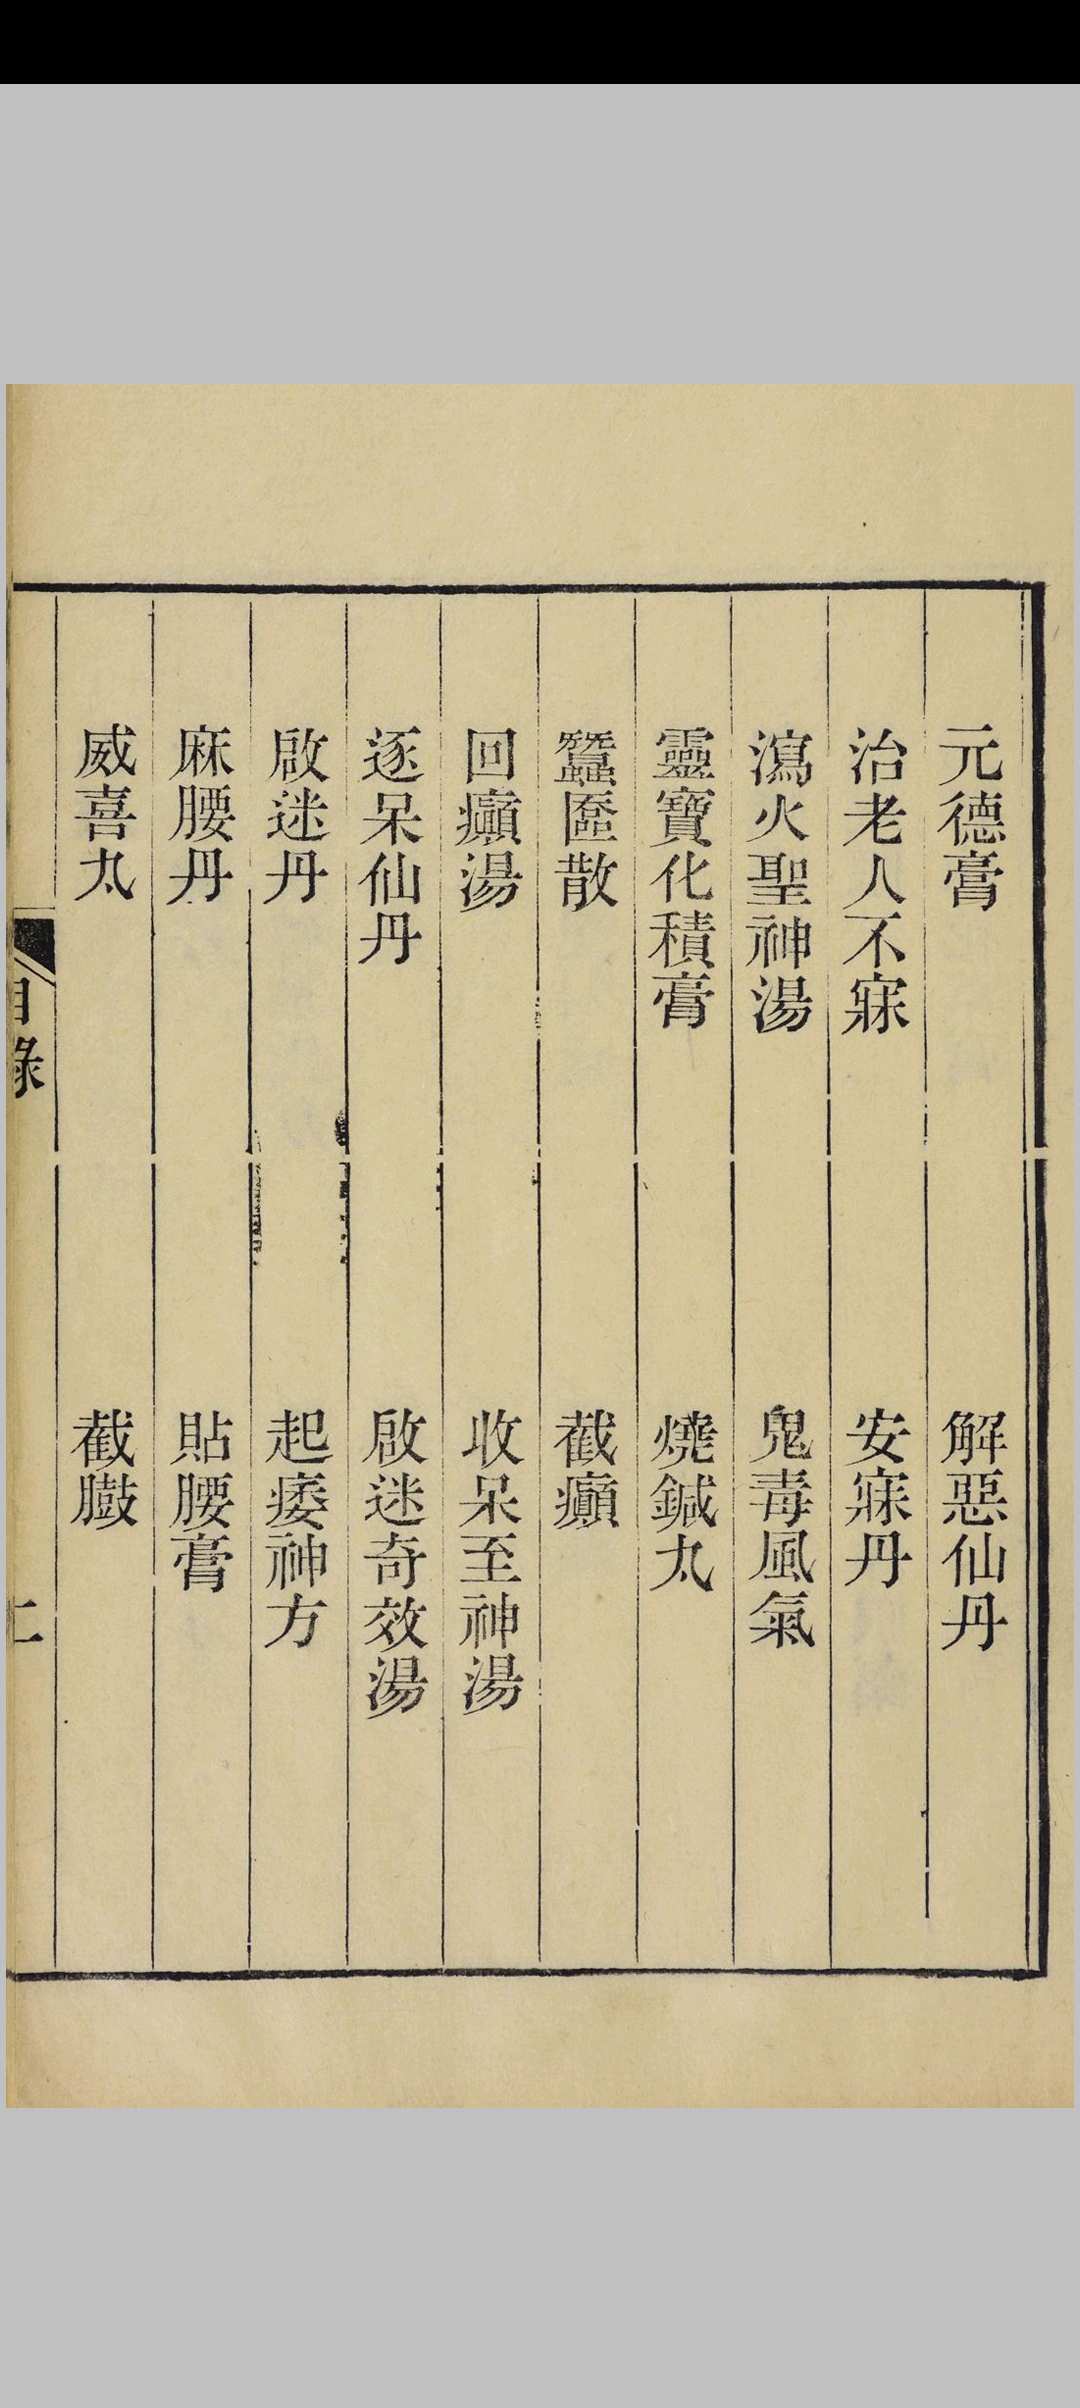 元德膏　解惡仙丹
治老人不寐　安寐丹
瀉火聖神湯　鬼毒風氣
靈寶化積膏　燒鍼丸
蠶匿散　截癲
回癲湯　收呆至神湯
逐呆仙丹　啟迷奇效湯
啟迷丹　起痿神方
麻腰丹　貼腰膏
威喜丸　截臌
目錄　二